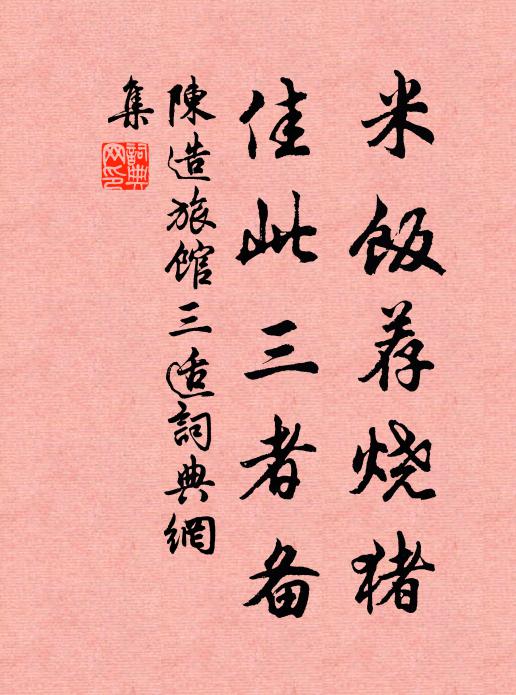 米飯荐烧猪
佳此三者备
陳造旅館三适詞典網
集
詞典
网印